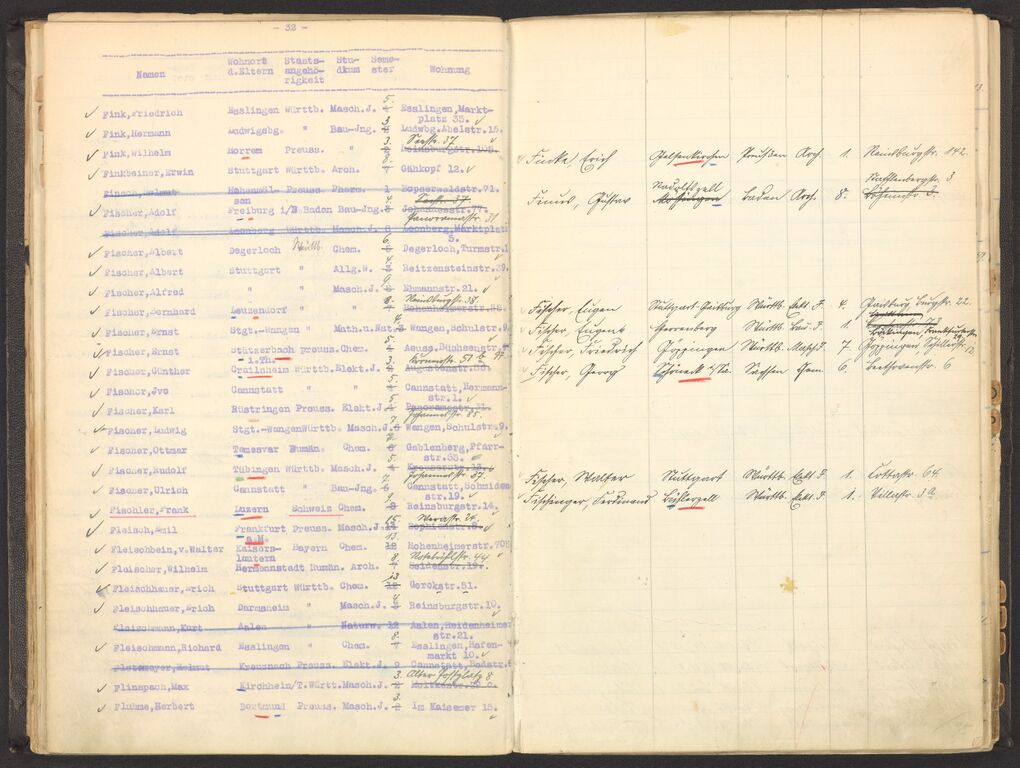 - 32 -
Namen Wohnort d.Eltern Staats-angehö-rigkeit Stu-dium Seme-ster Wohnung
Fink,Friedrich Esslingen Württb. Masch.J. 5. Esslingen,Markt-
platz 35.
Fink,Hermann Ludwigsbg. " Bau-Jng. 3 Ludwbg.Abelstr.15.
Fink,Wilhelm Horrem Preuss. " 3. Seestr. 37 Reinsburgstr.105.
Finkbeiner,Erwin Stuttgart Württb. Arch. 8. Gähkopf 12.
Finsch,Helmut Preuss. Pharm. 1 Hopserwaldstr.71.
Fischer,Adolf Freiburg i/B Baden Bau-Jng. 4. Seestr. 37
Panoramastr. 31
Fischer,Adolf Leonberg Württb. Masch.J. 8 Leonberg,Marktplatz
5.
Fischer,Albert Degerloch Württb. Chem. 6. Degerloch,Turmstr.1
Fischer,Albert Stuttgart " Allg.W. 4 Reitzensteinstr.39.
Fischer,Alfred " " Masch.J. 9 Ehmannstr.21.
Fischer,Bernhard Leuzendorf " " 8. Reinsburgstr. 38. Hohenheimerstr.
Fischer,Ernst Stgt.-Wangen " Math.u.Nat. 4. Wangen,Schulstr.9
Fischer,Ernst Stützerbach i.Th. preuss. Chem. 5. Aeuss.Büchsenstr.
Fischer,Günther Crailnheim Württb. Elekt.J. Augustenstr.
Fischer,Jvo Cannstatt " " 5. Cannstatt,Hermann-
str.1.
Fischer,Karl Rüstringen Preuss. Elekt.J. 5 Panoramastr.31.
Johannesstr. 85.
Fischer,Ludwig Stgt.-Wangen Württb. Masch.J. 7. Wangen,Schulstr.9.
Fischer,Ottmar Temesvar Rumän. Chem. Gablenberg,Pfarr-
str.55.
Fischer,Rudolf Tübingen Württb. Masch.J. 5. Kreuserstr.13.
Johannesstr. 37.
Fischer,Ulrich Cannstatt " Bau-Jng. 7. Cannstatt,Schmiden
str.19.
Fischler,Frank Luzern Schweiz Chem. 9 Reinsburgstr.14.
Fleisch,Emil Frankfurt a.M. Preuss. Masch.J. 15. Werastr. 24. Sophienstr.
Fleischbein,v.Walter Kaisers-lautern Bayern Chem. 13 Hohenheimerstr.70B
Fleischer,Wilhelm Hermannstadt Rumän. Arch. 8. Rotebühlstr. 44 Seidenstr.19.
Fleischhauer,Erich Stuttgart Württb. Chem. 13 Gerokstr.51.
Fleischhauer,Erich Darmsheim " Masch.J. 4 Reinsburgstr.10.
Fleischmann,Kurt Aalen " Naturw. 12 Aalen,Heidenheimer
str.21.
Fleischmann,Richard Esslingen " Chem. 8. Esslingen,Hafen-
markt 10.
Kreuznach Preuss. Elekt.J. 9 Cannstatt,Badstr.
Flinspach,Max Kirchhein/T. Württ. Masch.J. 3. Alter Postplatz 8 Moltkestr.
Fluhme,Herbert Dortmund Preuss. Masch.J. 3 Im Kaisemer 15.
Finke, Erich Gelsenkirchen Preußen Arch. 1. Reinsburgstr. 142
Gustav Radolfzell Baden Arch. 8.
Fischer, Eugen Stuttgart-Gaisburg Württb. Elkt. J. 4. Gaisburg, Burgstr. 22.
Fischer, Eugen Herrenberg Württb. Bau J. 1.
Fischer, Friedrich Göppingen Württb. Masch J. 7 Göppingen, Schillerstr.
Fischer, Georg Sachsen Chem. 6. Beethovenstr. 6
Fischer, Walter Stuttgart Württb. Elkt J. 1. Cottastr. 64
Fischinger, Ferdinand Bühlerzell Württb. Elkt. J. 1. Villastr.